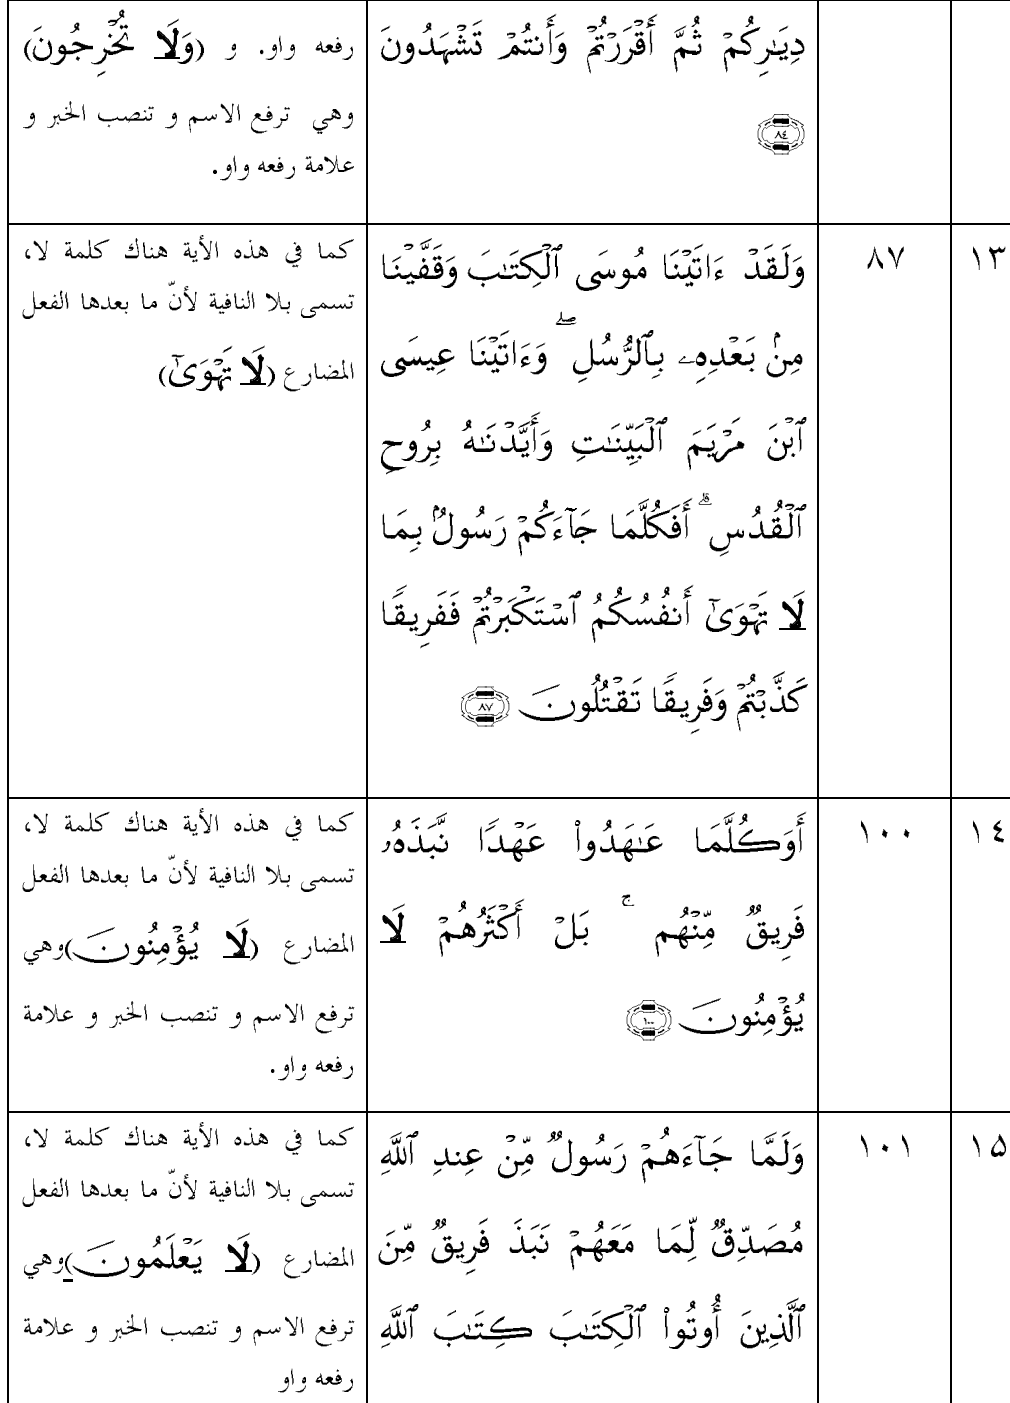 دِيَـٰرِكُمْ ثُمَّ أَقْرَرْتُمْ وَأَنتُمْ تَشْهَدُونَ
٨٤
رفعه واو. و (وَلَا تُخْرِجُونَ)
وهي ترفع الاسم و تنصب الخبر و
علامة رفعه واو.
١٣
٨٧
وَلَقَدْ ءَاتَيْنَا مُوسَى ٱلْكِتَـٰبَ وَقَفَّيْنَا
مِنۢ بَعْدِهِۦ بِٱلرُّسُلِ ۖ وَءَاتَيْنَا عِيسَى
ٱبْنَ مَرْيَمَ ٱلْبَيِّنَـٰتِ وَأَيَّدْنَـٰهُ بِرُوحِ
ٱلْقُدُسِ ۗ أَفَكُلَّمَا جَآءَكُمْ رَسُولٌۢ بِمَا
لَا تَهْوَىٰٓ أَنفُسُكُمُ ٱسْتَكْبَرْتُمْ فَفَرِيقًا
كَذَّبْتُمْ وَفَرِيقًا تَقْتُلُونَ ٨٧
كما في هذه الأية هناك كلمة لا،
تسمى بلا النافية لأنّ ما بعدها الفعل
المضارع (لَا تَهْوَىٰٓ)
١٤
١٠٠
أَوَكُلَّمَا عَـٰهَدُوا۟ عَهْدًا نَّبَذَهُۥ
فَرِيقٌ مِّنْهُم ۚ بَلْ أَكْثَرُهُمْ لَا
يُؤْمِنُونَ ١٠٠
كما في هذه الأية هناك كلمة لا،
تسمى بلا النافية لأنّ ما بعدها الفعل
المضارع (لَا يُؤْمِنُونَ)وهي
ترفع الاسم و تنصب الخبر و علامة
رفعه واو.
١٥
١٠١
وَلَمَّا جَآءَهُمْ رَسُولٌ مِّنْ عِندِ ٱللَّهِ
مُصَدِّقٌ لِّمَا مَعَهُمْ نَبَذَ فَرِيقٌ مِّنَ
ٱلَّذِينَ أُوتُوا۟ ٱلْكِتَـٰبَ كِتَـٰبَ ٱللَّهِ
كما في هذه الأية هناك كلمة لا،
تسمى بلا النافية لأنّ ما بعدها الفعل
المضارع (لَا يَعْلَمُونَ)وهي
ترفع الاسم و تنصب الخبر و علامة
رفعه واو